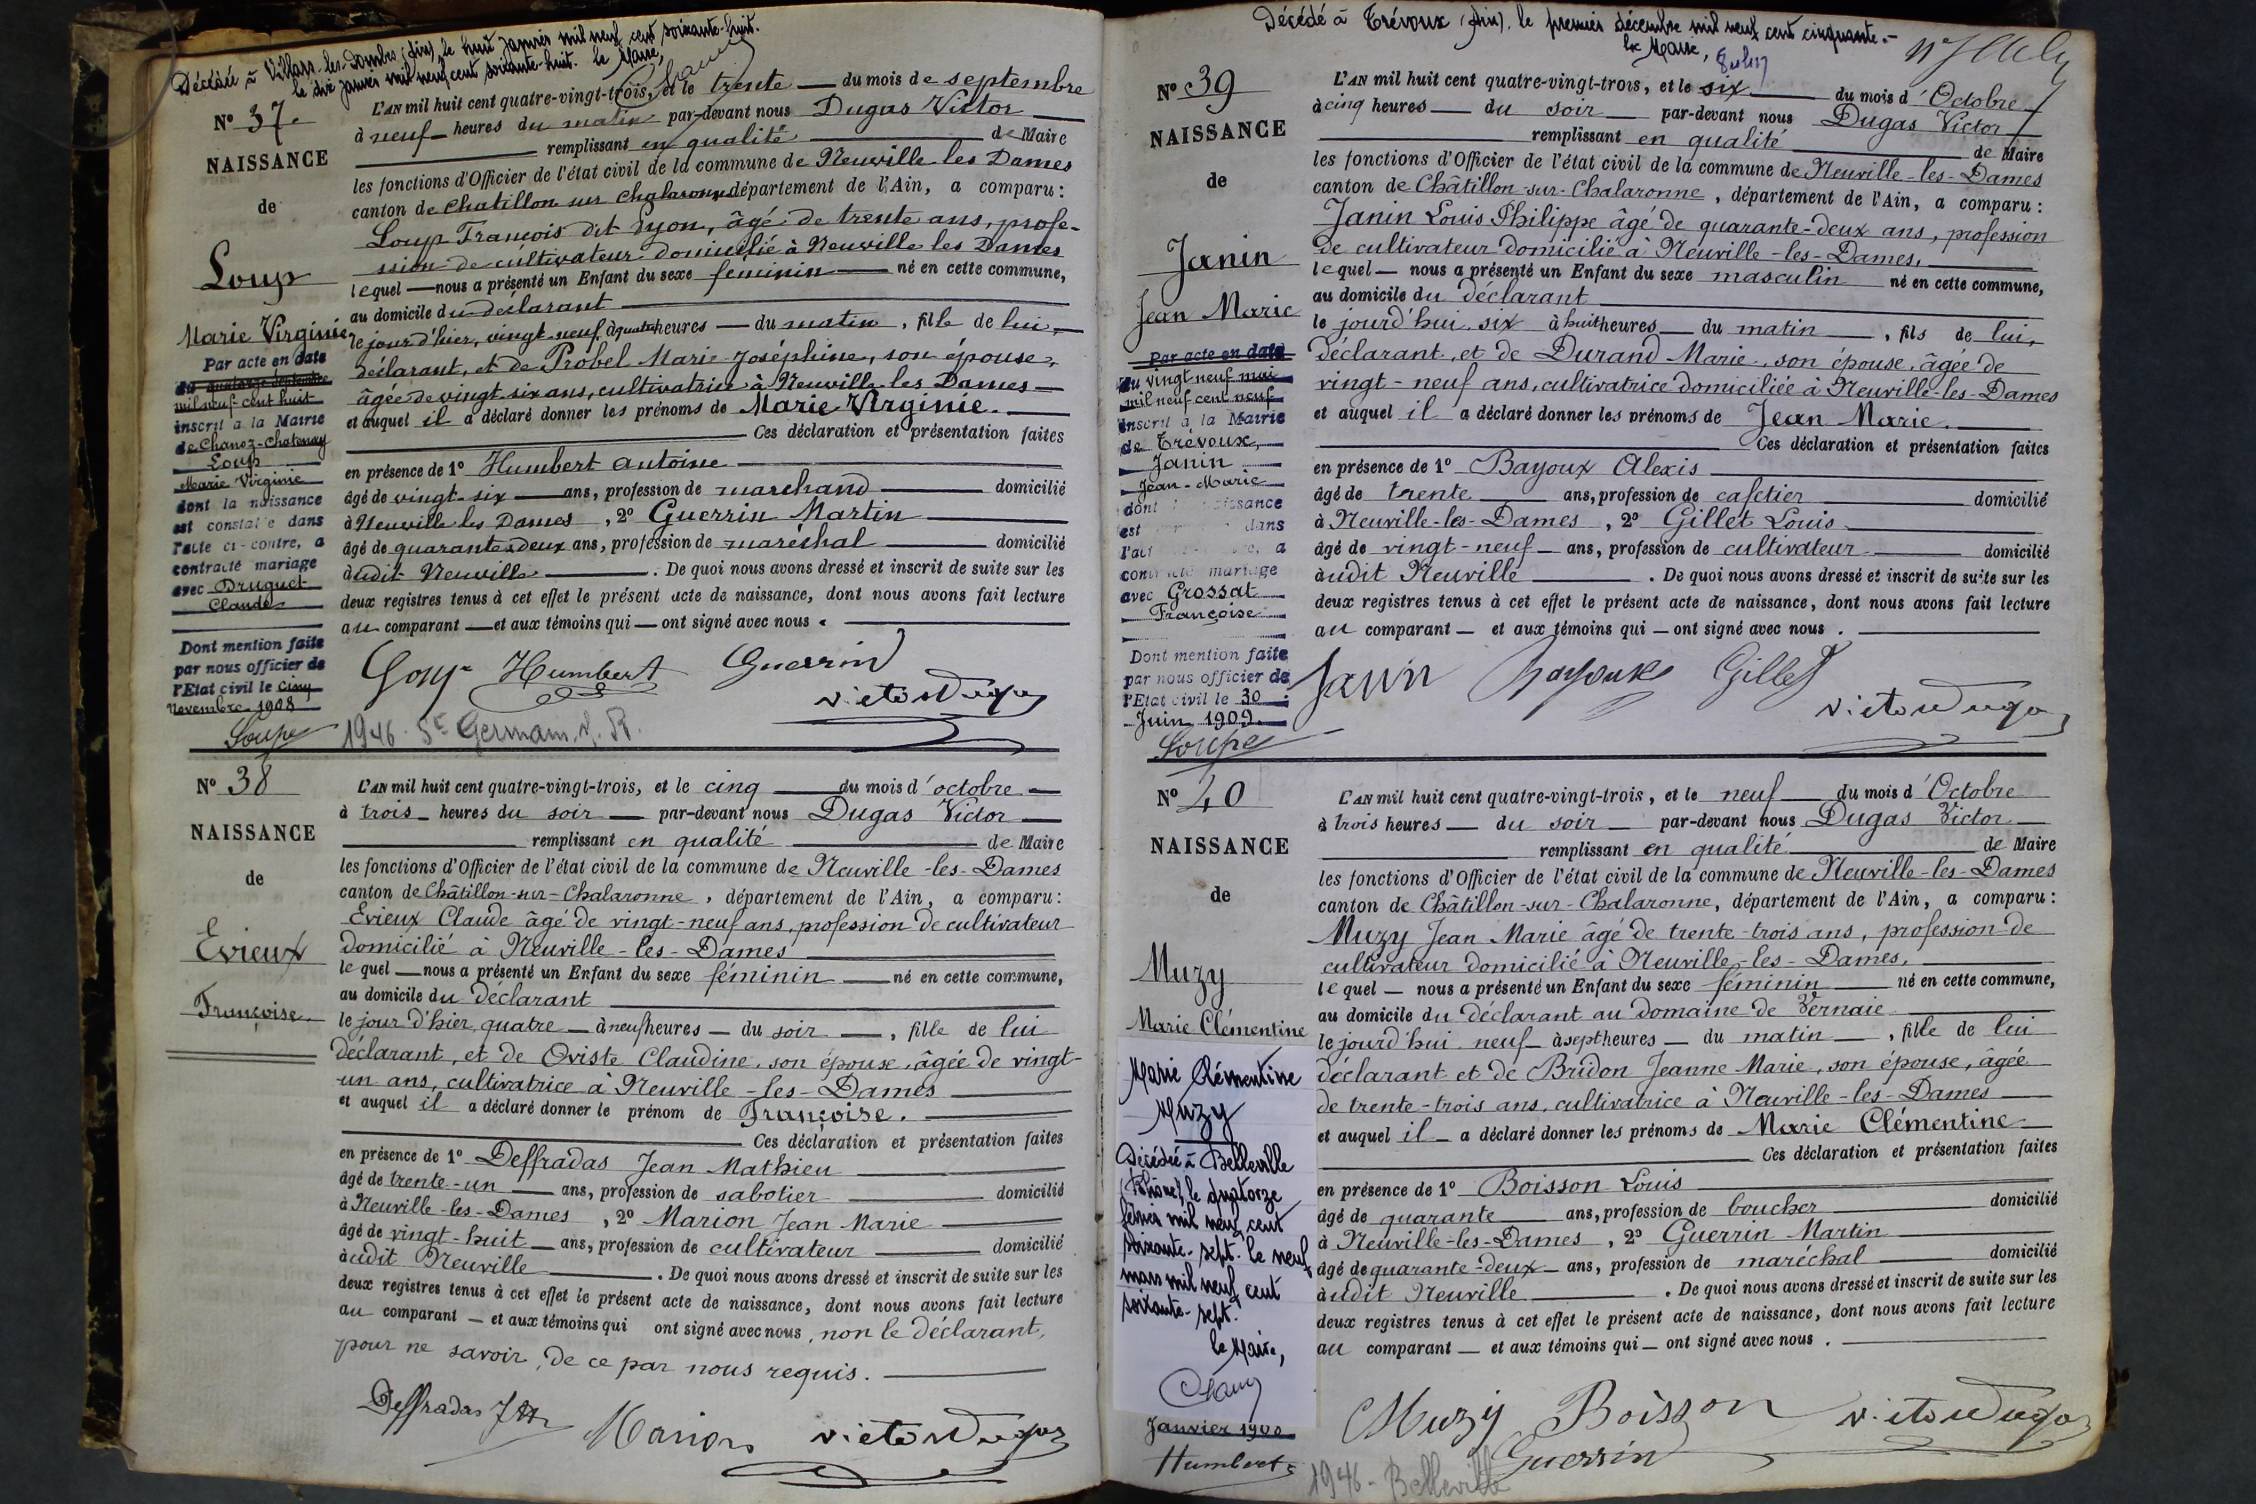 Décédée à Villars-les-Dombes (Ain), le huit janvier mil neuf cent soixante-huit.
le dix janvier mil neuf cent soixante-huit. le Maire,
N° 37.
NAISSANCE
de
Loup
Marie Virginie
Par acte en date
du quatorze septembre
mil neuf cent huit
inscrit à la Mairie
de Chanoz-Chatenay
Loup
Marie Virginie
dont la naissance
est constatée dans
l'acte ci-contre, a
contracté mariage
avec Druguet
Claude
Dont mention faite
par nous officier de
l'Etat civil le cinq
Novembre 1908
Loupe
L'AN mil huit cent quatre-vingt-trois, et le trente du mois de septembre
à neuf heures du matin par-devant nous Dugas Victor
remplissant en qualité de Maire
les fonctions d'Officier de l'état civil de la commune de Neuville les Dames
canton de Chatillon sur Chalaronne département de l'Ain, a comparu :
Loup François dit Lyon, âgé de trente ans, profe-
ssion de cultivateur domicilié à Neuville les Dames
lequel nous a présenté un Enfant du sexe féminin né en cette commune,
au domicile du déclarant
le jour d'hier, vingt-neuf à quatre heures du matin, fille de lui,
déclarant, et de Probel Marie Joséphine, son épouse,
âgée de vingt six ans, cultivatrice à Neuville les Dames
et auquel il a déclaré donner les prénoms de Marie Virginie.
Ces déclaration et présentation faites
en présence de 1° Humbert Antoine
âgé de vingt-six ans, profession de marchand domicilié
à Neuville les Dames, 2° Guerrin Martin
âgé de quarante-deux ans, profession de maréchal domicilié
àudit Neuville. De quoi nous avons dressé et inscrit de suite sur les
deux registres tenus à cet effet le présent acte de naissance, dont nous avons fait lecture
au comparant et aux témoins qui ont signé avec nous.
Loup Humbert Guerrin
Victor Dugas
1946. St Germain. s. R.
N° 38
NAISSANCE
de
Evieux
Françoise.
L'AN mil huit cent quatre-vingt-trois, et le cinq du mois d'octobre
à trois heures du soir par-devant nous Dugas Victor
remplissant en qualité de Maire
les fonctions d'Officier de l'état civil de la commune de Neuville-les-Dames
canton de Châtillon-sur-Chalaronne, département de l'Ain, a comparu :
Evieux Claude âgé de vingt-neuf ans, profession de cultivateur
domicilié à Neuville-les-Dames
lequel nous a présenté un Enfant du sexe féminin né en cette commune,
au domicile du déclarant
le jour d'hier, quatre à neuf heures du soir, fille de lui
déclarant, et de Oviste Claudine, son épouse, âgée de vingt-
un ans, cultivatrice à Neuville-les-Dames
et auquel il a déclaré donner le prénom de Françoise.
Ces déclaration et présentation faites
en présence de 1° Deffradas Jean Mathieu
âgé de trente-un ans, profession de sabotier domicilié
à Neuville-les-Dames, 2° Marion Jean Marie
âgé de vingt-huit ans, profession de cultivateur domicilié
àudit Neuville. De quoi nous avons dressé et inscrit de suite sur les
deux registres tenus à cet effet le présent acte de naissance, dont nous avons fait lecture
au comparant et aux témoins qui ont signé avec nous, non le déclarant,
pour ne savoir, de ce par nous requis.
Deffradas JM Marion Victor Dugas
Décédé à Trévoux (Ain), le premier décembre mil neuf cent cinquante.-
Le Maire,
N° 39
NAISSANCE
de
Janin
Jean Marie
Par acte en date
du vingt neuf mai
mil neuf cent neuf
inscrit à la Mairie
de Trévoux,
Janin
Jean-Marie
dont la naissance
est dans
l'acte a
contracté mariage
avec Grossat
Françoise
Dont mention faite
par nous officier de
l'Etat civil le 30
Juin 1909
Loupe
L'AN mil huit cent quatre-vingt-trois, et le six du mois d'Octobre
à cinq heures du soir par-devant nous Dugas Victor
remplissant en qualité de Maire
les fonctions d'Officier de l'état civil de la commune de Neuville-les-Dames
canton de Châtillon-sur-Chalaronne, département de l'Ain, a comparu :
Janin Louis Philippe âgé de quarante-deux ans, profession
de cultivateur domicilié à Neuville-les-Dames,
lequel nous a présenté un Enfant du sexe masculin né en cette commune,
au domicile du déclarant
le jourd'hui six à huit heures du matin, fils de lui,
déclarant, et de Durand Marie, son épouse, âgée de
vingt-neuf ans, cultivatrice domiciliée à Neuville-les-Dames
et auquel il a déclaré donner les prénoms de Jean Marie.
Ces déclaration et présentation faites
en présence de 1° Bayoux Alexis
âgé de trente ans, profession de cafetier domicilié
à Neuville-les-Dames, 2° Gillet Louis
âgé de vingt-neuf ans, profession de cultivateur domicilié
àudit Neuville. De quoi nous avons dressé et inscrit de suite sur les
deux registres tenus à cet effet le présent acte de naissance, dont nous avons fait lecture
au comparant et aux témoins qui ont signé avec nous.
Janin Bayoux Gillet
Victor Dugas
N° 40
NAISSANCE
de
Muzy
Marie Clémentine
Marie Clémentine
Muzy
Décédée à Belleville
(Rhône), le quatorze
février mil neuf cent
soixante-sept. le neuf
mars mil neuf cent
soixante-sept.
le Maire,
Janvier 1900
Humbert
L'AN mil huit cent quatre-vingt-trois, et le neuf du mois d'Octobre
à trois heures du soir par-devant nous Dugas Victor
remplissant en qualité de Maire
les fonctions d'Officier de l'état civil de la commune de Neuville-les-Dames
canton de Châtillon-sur-Chalaronne, département de l'Ain, a comparu :
Muzy Jean Marie âgé de trente-trois ans, profession de
cultivateur domicilié à Neuville-les-Dames,
lequel nous a présenté un Enfant du sexe féminin né en cette commune,
au domicile du déclarant au domaine de Vernaie
le jourd'hui neuf à sept heures du matin, fille de lui
déclarant et de Bridon Jeanne Marie, son épouse, âgée
de trente-trois ans, cultivatrice à Neuville-les-Dames
et auquel il a déclaré donner les prénoms de Marie Clémentine
Ces déclaration et présentation faites
en présence de 1° Boisson Louis
âgé de quarante ans, profession de boucher domicilié
à Neuville-les-Dames, 2° Guerrin Martin
âgé de quarante-deux ans, profession de maréchal domicilié
àudit Neuville. De quoi nous avons dressé et inscrit de suite sur les
deux registres tenus à cet effet le présent acte de naissance, dont nous avons fait lecture
au comparant et aux témoins qui ont signé avec nous.
Muzy Boisson Victor Dugas
Guerrin
1946 - Belleville